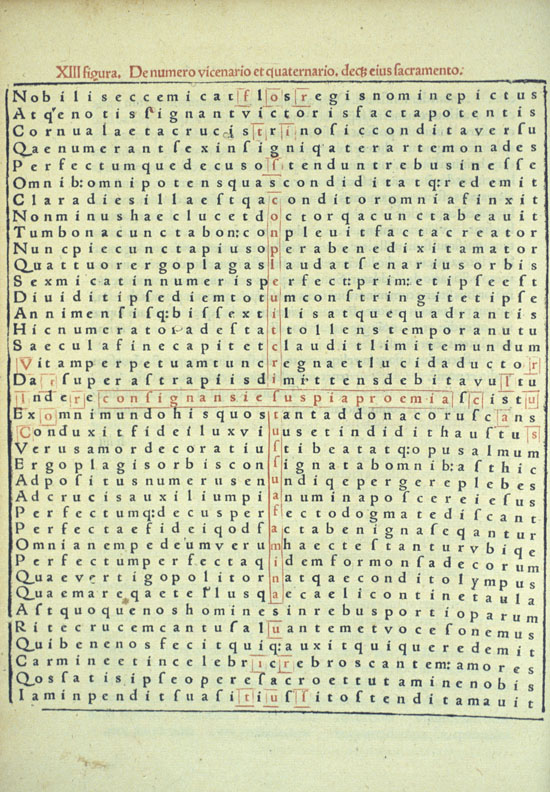 XIII figura. De numero vicenario et quaternario, deq; eius sacramento.
Nobiliseccemicatflosregisnominepictus
Atq;enotisſignantvictorisfactapotentis
Cornualaetacrucistrinoſicconditaverſu
Qaenumerantſexinſigniqaterartemonades
Perfectumquedecusoſtenduntrebusineſſe
Omnib:omnipotensquascondiditatq:redemit
Claradiesillaeſtqaconditoromniafinxit
Nonminushaeclucetdoctorqacunctabeauit
Tumbonacunctabon:conpleuitfactacreator
Nuncpiecunctapiusoperabenedixitamator
Quattuorergoplagaslaudatſenariusorbis
Sexmicatinnumerisperfect:prim:etipſeeſt
Diuiditipſediemtotumconſtringitetipſe
Annimenſiſq:biſſextilisatquequadrantis
Hicnumeratoradeſtattollenstemporanutu
Saeculafinecapitetclauditlimitemundum
Vitamperpetuamtuncregnaetlucidaductor
Datſuperaſtrapiisdimittensdebitavuſtu
Indereconſignansieſuspiaproemiaſciſtu
Exomnimundohisquostantaddonacoruſcans
Conduxitfideiluxviuusetindidithauſtus
Verusamordecoratiuſtibeatatq:opusalmum
Ergoplagisorbisconſignatabomnib:aſthic
Adpoſitusnumerusenundiqepergereplebes
Adcrucisauxiliumpianuminapoſcereieſus
Perfectumq:decusperfectodogmatediſcant
Perfectaefideiqodſactabenignaſeqantur
Omnianempedeumverumhaecteſtanturvbiqe
Perfectumperfectaqidemformonſadecorum
Quaevertigopolitornatqaeconditolympus
Quaemareqaeteſlusqaecaelicontinetaula
Aſtquoquenoshominesinrebusportioparum
Ritecrucemcantuſaluantemetvoceſonemus
Quibenenosfecitquiq:auxitquiqueredemit
Carmineetincelebricrebroscantem:amores
Qosſatisipſeopereſacroettutaminenobis
Iaminpenditſuaſitiusſitoſtenditamauit